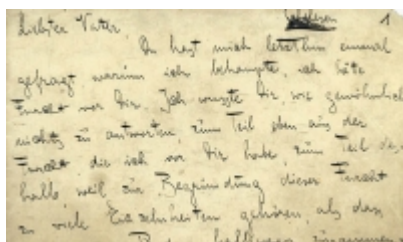 Schelesen 1
Liebster Vater,
Du hast mich letzthin einmal
gefragt, warum ich behaupte, ich hätte
Furcht vor Dir. Ich wusste Dir, wie gewöhnlich,
nichts zu antworten, zum Teil eben aus der
Furcht, die ich vor Dir habe, zum Teil
halb, weil zur Begründung dieser Furcht
zu viele Einzelnheiten gehören, als dass